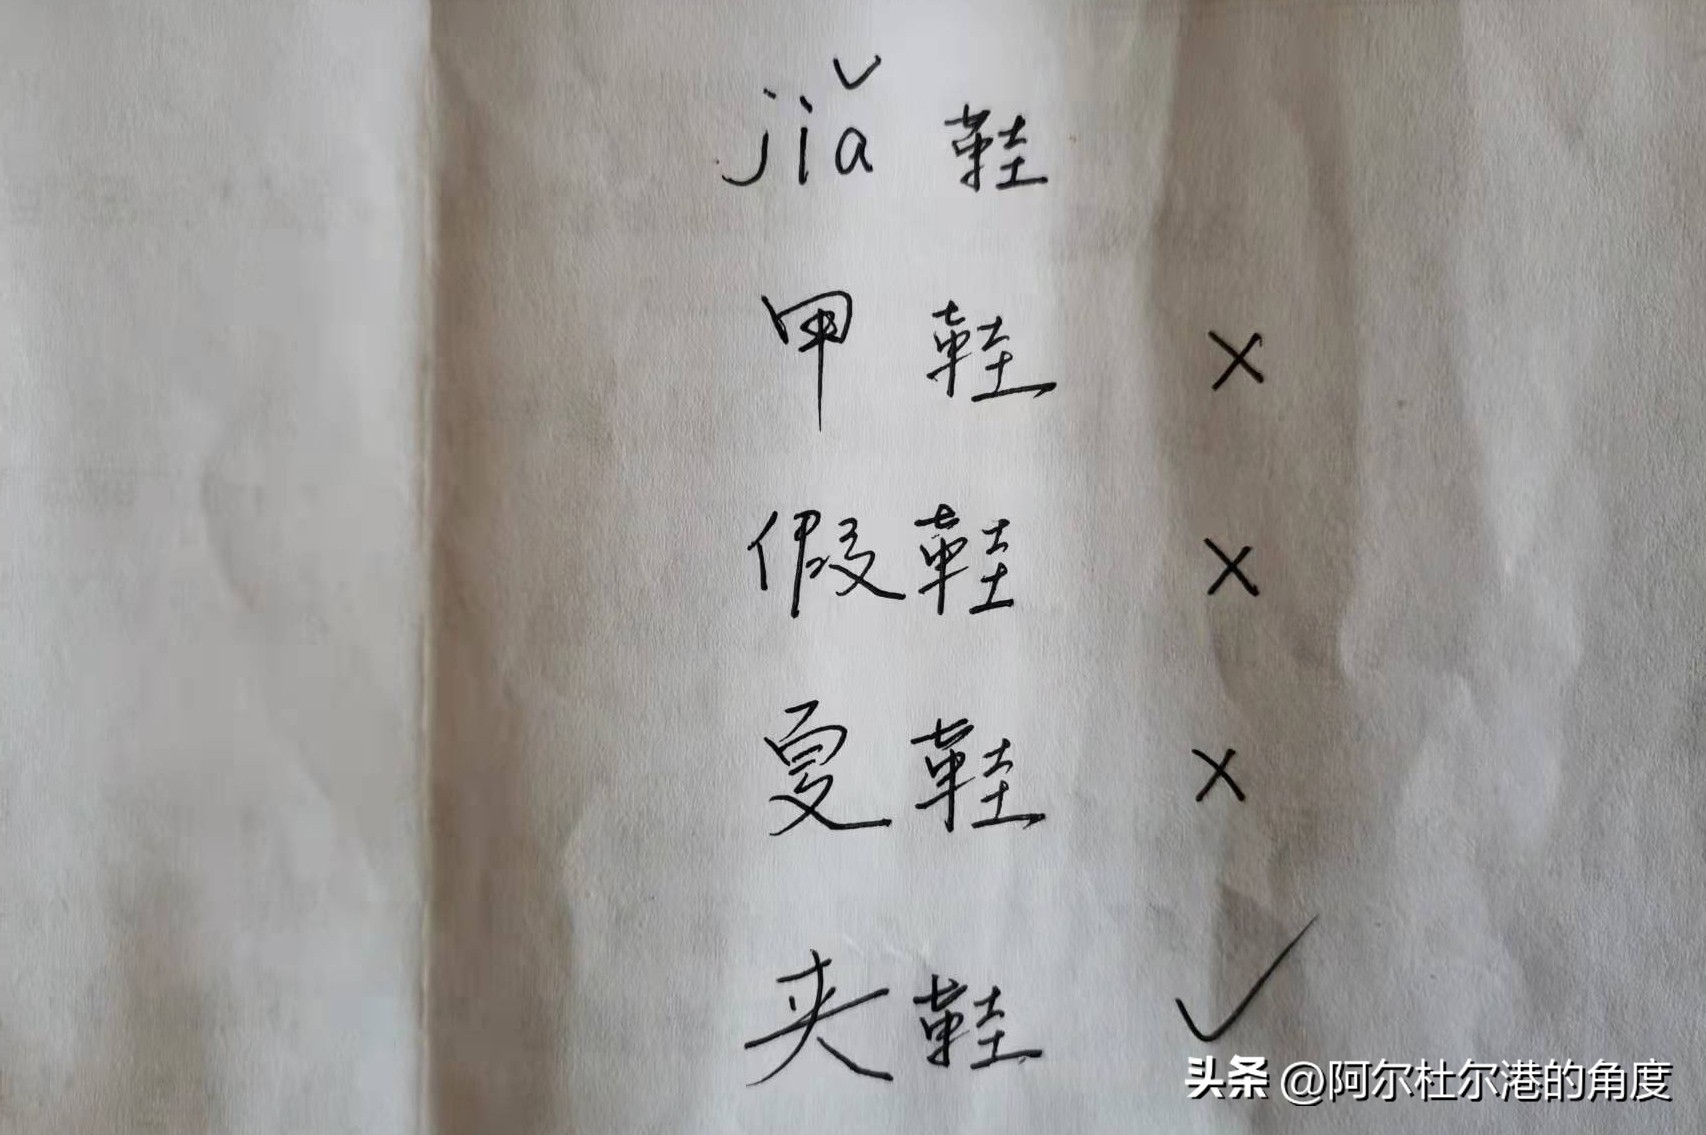 jiǎ 鞋
甲 鞋 ×
假鞋 ×
夏鞋 ×
夹鞋 ✓
头条 @阿尔杜尔港的角度